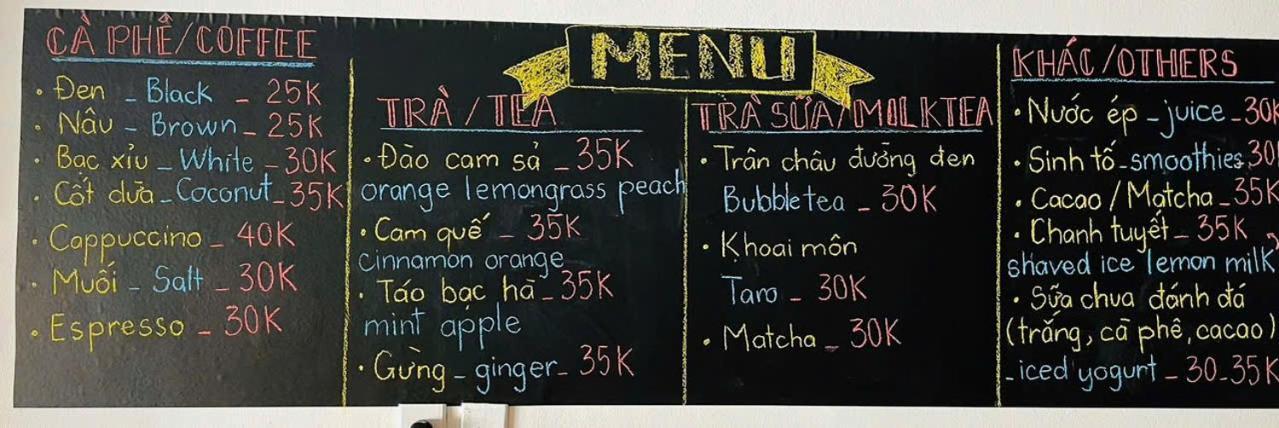 MENU
CÀ PHÊ/COFFEE
• Đen - Black - 25K
• Nâu - Brown - 25K
• Bạc xỉu - White - 30K
• Cốt dừa - Coconut - 35K
• Cappuccino - 40K
• Muối - Salt - 30K
• Espresso - 30K
TRÀ / TEA
• Đào cam sả - 35K
orange lemongrass peach
• Cam quế - 35K
cinnamon orange
• Táo bạc hà - 35K
mint apple
• Gừng - ginger - 35K
TRÀ SỮA/MILKTEA
• Trân châu đường đen
Bubble tea - 30K
• Khoai môn
Taro - 30K
• Matcha - 30K
KHÁC/OTHERS
• Nước ép - juice - 30K
• Sinh tố - smoothies 30
• Cacao / Matcha - 35K
• Chanh tuyết - 35K
shaved ice lemon milk
• Sữa chua đánh đá
(trắng, cà phê, cacao)
- iced yogurt - 30-35K